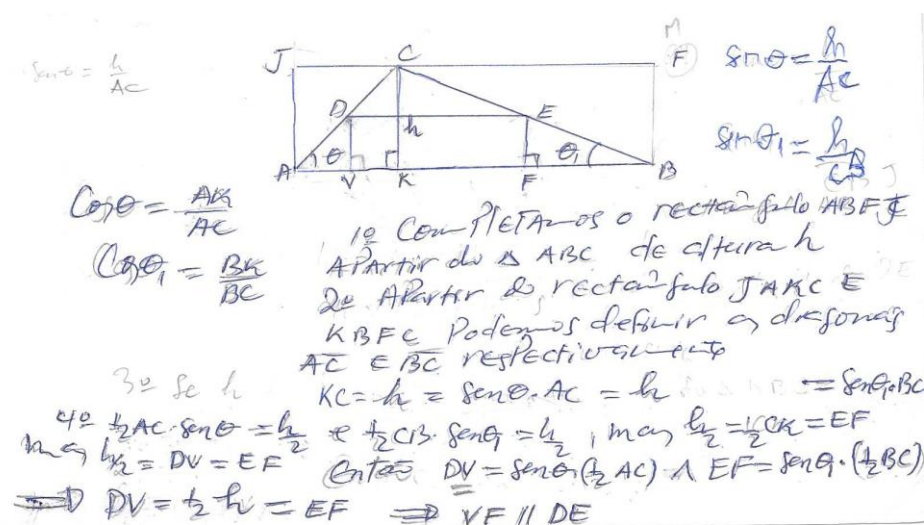 senθ = h/AC
J C M F
D h E
A θ V K F θ₁ B
sinθ = h/AC
sinθ₁ = h/CB
Cosθ = AK/AC
Cosθ₁ = BK/BC
1º Completamos o rectângulo ABFJ
Apartir do Δ ABC de altura h
2º Apartir do rectângulo JAKC E
KBFC Podemos definir as diagonais
AC E BC respectivamente
3º Se h
KC = h = senθ.AC = h = senθ₁.BC
4º ½AC.senθ = h/2 e ½CB.senθ₁ = h/2, mas h/2 = ½CK = EF
mas h/2 = DV = EF Então DV = senθ.(½AC) ∧ EF = senθ₁.(½BC)
⇒ DV = ½h = EF ⇒ VF // DE